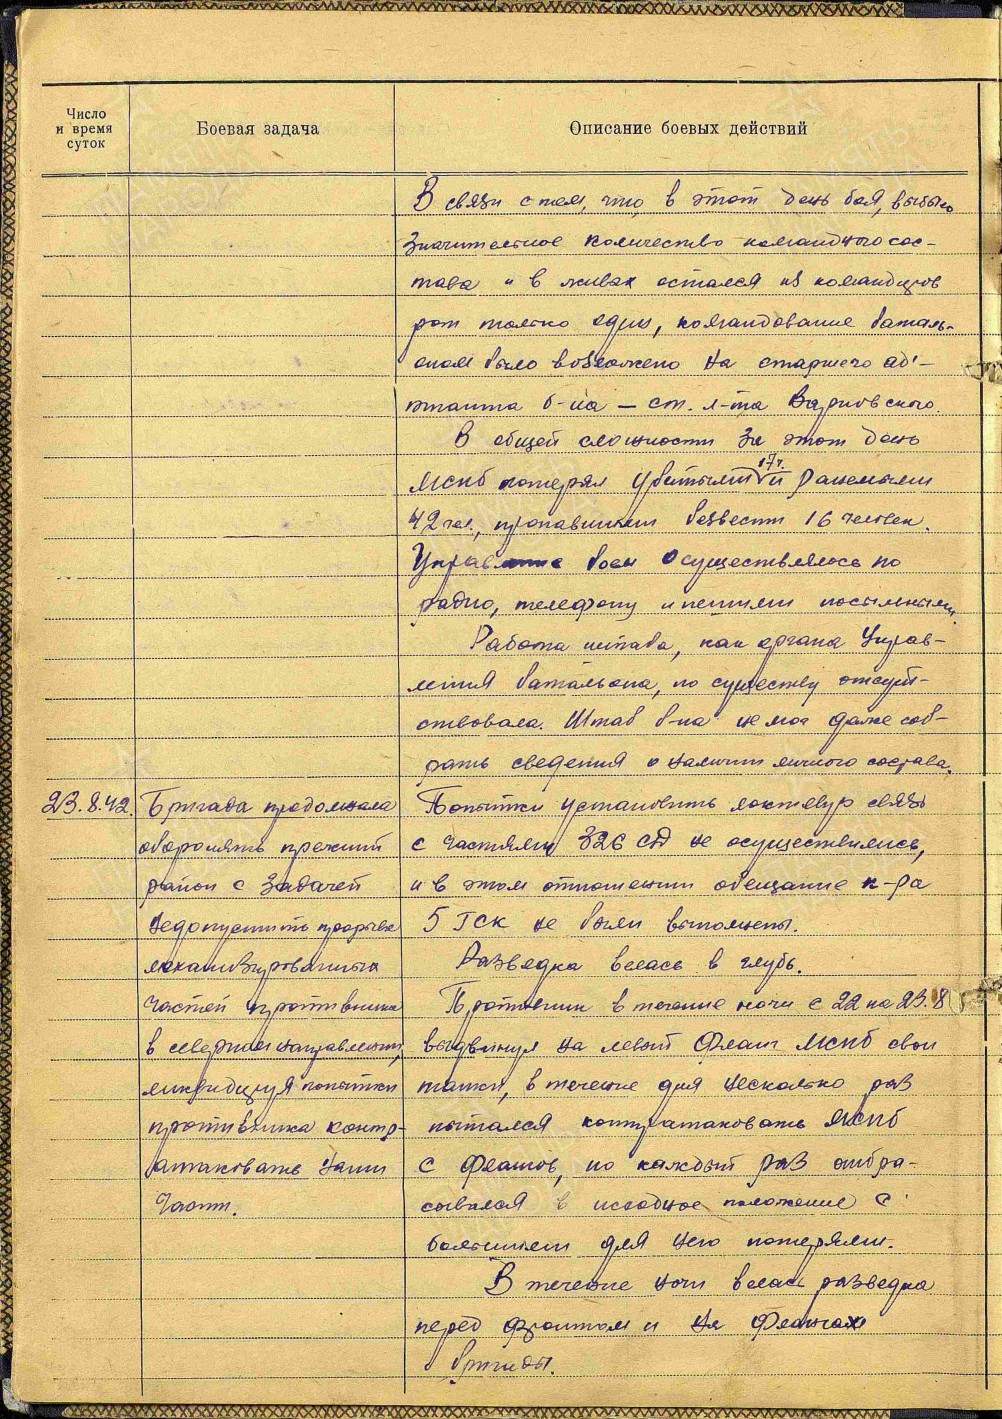 Число
и время
суток
Боевая задача
Описание боевых действий
В связи с тем, что в этот день боя, выбыло
значительное количество командного сос-
тава и в живых остался из командиров
рот только один, командование баталь-
оном было возложено на старшего адъ-
ютанта б-на – ст. л-та Варновского.
В общей сложности за этот день
МСПБ потерял убитыми 17ч. и ранеными
42 чел., пропавшими безвести 16 человек.
Управление боем осуществлялось по
радио, телефону и пешими посыльными.
Работа штаба, как органа управ-
ления батальона, по существу отсут-
ствовала. Штаб б-на не мог даже соб-
рать сведения о наличии личного состава.
23.8.42.
Бригада продолжала
оборонять прежний
район с задачей
недопустить прорыва
механизированных
частей противника
в северном направлении,
ликвидируя попытки
противника контр-
атаковать наши
части.
Попытки установить локтевую связь
с частями 326 СД не осуществились,
и в этом отношении обещание к-ра
5 ГСК не были выполнены.
Разведка велась в глубь.
Противник в течение ночи с 22 на 23.8
выдвинул на левый фланг МСПБ свои
танки, в течение дня несколько раз
пытался контратаковать МСПБ
с флангов, но каждый раз отбра-
сывался в исходное положение с
большими для него потерями.
В течение ночи велась разведка
перед фронтом и на флангах
бригады.